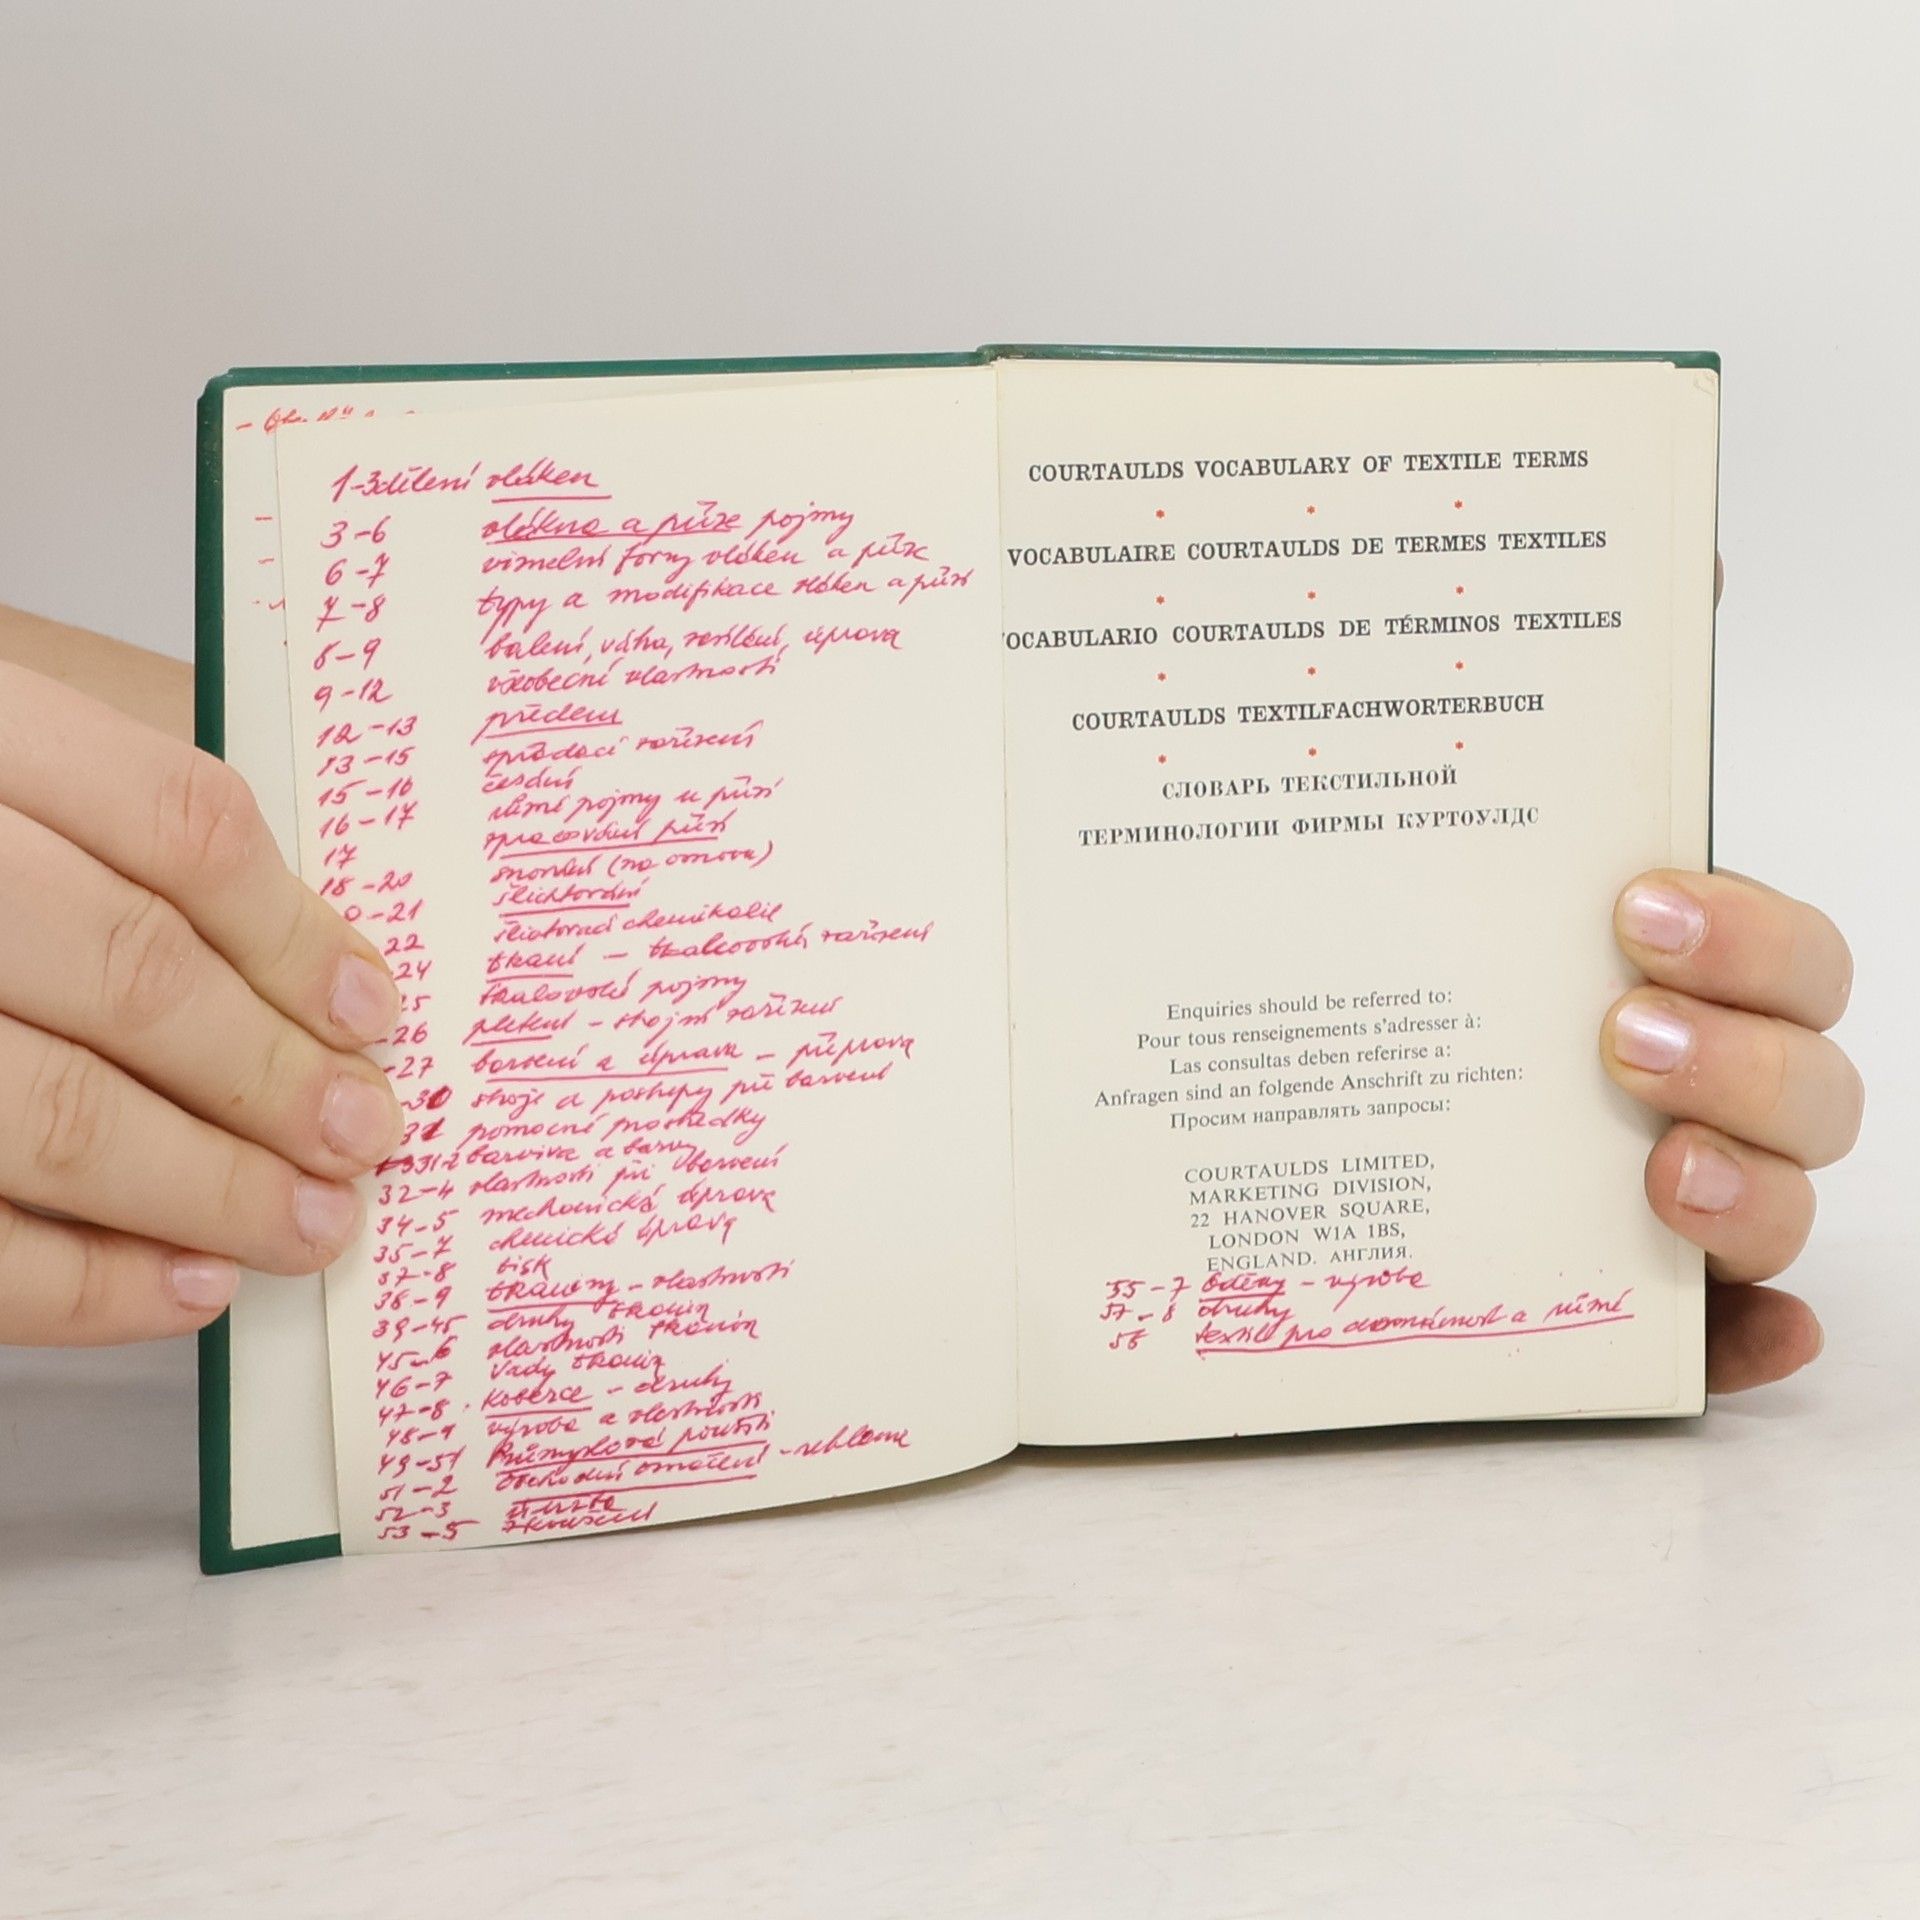 1-3 dělení vláken
3-6 vlákna a příze pojmy
6-7 formy vláken a příze
7-8 typy a modifikace vláken a přízí
8-9 balení, váha, úprava
9-12 všeobecné vlastnosti
12-13 předení
13-15 spřádací zařízení
15-16 česání
16-17 různé pojmy u přízí
17 zpracování přízí
18-20 snování (na osnova)
0-21 šlichtování
22 chemikalie
24 tkaní - tkalcovská zařízení
25 tkalcovské pojmy
-26 pletení - strojní zařízení
-27 barvení a úprava - příprava
-30 stroje a postupy při barvení
31 pomocné prostředky
31-2 barviva a barvy
32-4 vlastnosti při barvení
34-5 mechanická úprava
35-7 chemická úprava
37-8 tisk
38-9 tkaniny - vlastnosti
39-45 druhy tkanin
45-6 vlastnosti tkanin
46-7 vady tkanin
47-8 koberce - druhy
48-9 výroba a vlastnosti
49-51 Průmyslová použití
51-2 obchodní označení - reklama
52-3 údržba
53-5 zkoušení
COURTAULDS VOCABULARY OF TEXTILE TERMS
VOCABULAIRE COURTAULDS DE TERMES TEXTILES
OCABULARIO COURTAULDS DE TÉRMINOS TEXTILES
COURTAULDS TEXTILFACHWORTERBUCH
СЛОВАРЬ ТЕКСТИЛЬНОЙ
ТЕРМИНОЛОГИИ ФИРМЫ КУРТОУЛДС
Enquiries should be referred to:
Pour tous renseignements s'adresser à:
Las consultas deben referirse a:
Anfragen sind an folgende Anschrift zu richten:
Просим направлять запросы:
COURTAULDS LIMITED,
MARKETING DIVISION,
22 HANOVER SQUARE,
LONDON W1A 1BS,
ENGLAND. АНГЛИЯ.
55-7 oděvy - výroba
57-8 druhy
58 textil pro domácnost a různé